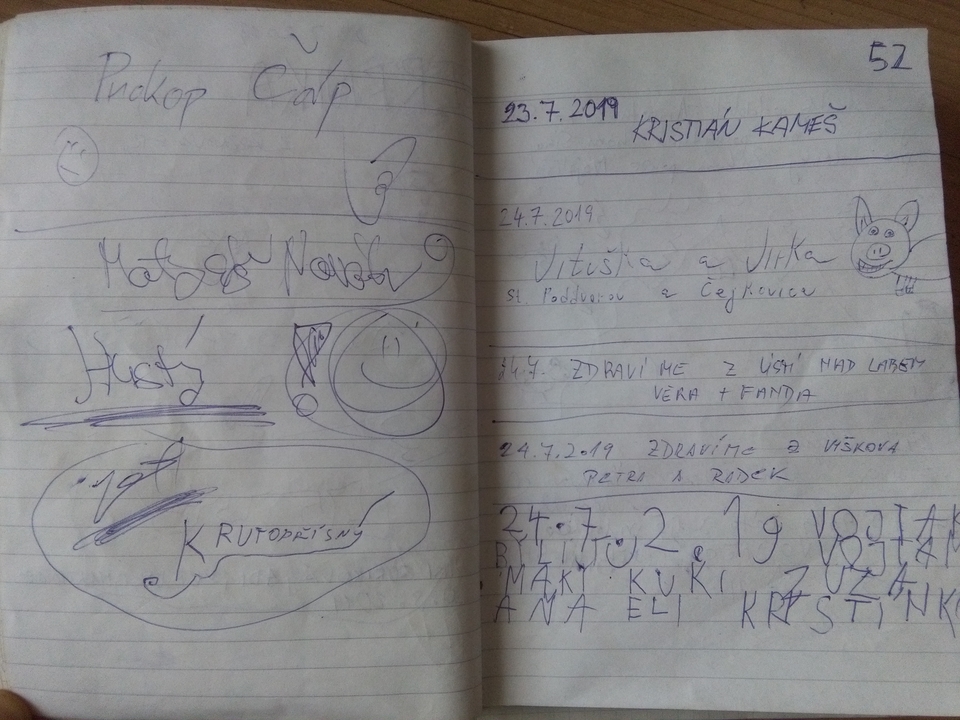 Prokop Čáp
Matyáš Novák
Hustý
jat
KRUTOPŘÍSNÝ
52
23.7.2019
KRISTIÁN KAMEŠ
24.7.2019
Vituška a Jirka
st. Poddvorov a Čejkovice
24.7. ZDRAVÍME Z ÚSTÍ NAD LABEM
VĚRA + FANDA
24.7.2019 ZDRAVÍME Z VIŠKOVA
PETRA A RADEK
24.7.2.19 VOJTAK
BYLI TU VOJTAM
MAKI KUKI ZUZA
ANA ELI KRISTINK